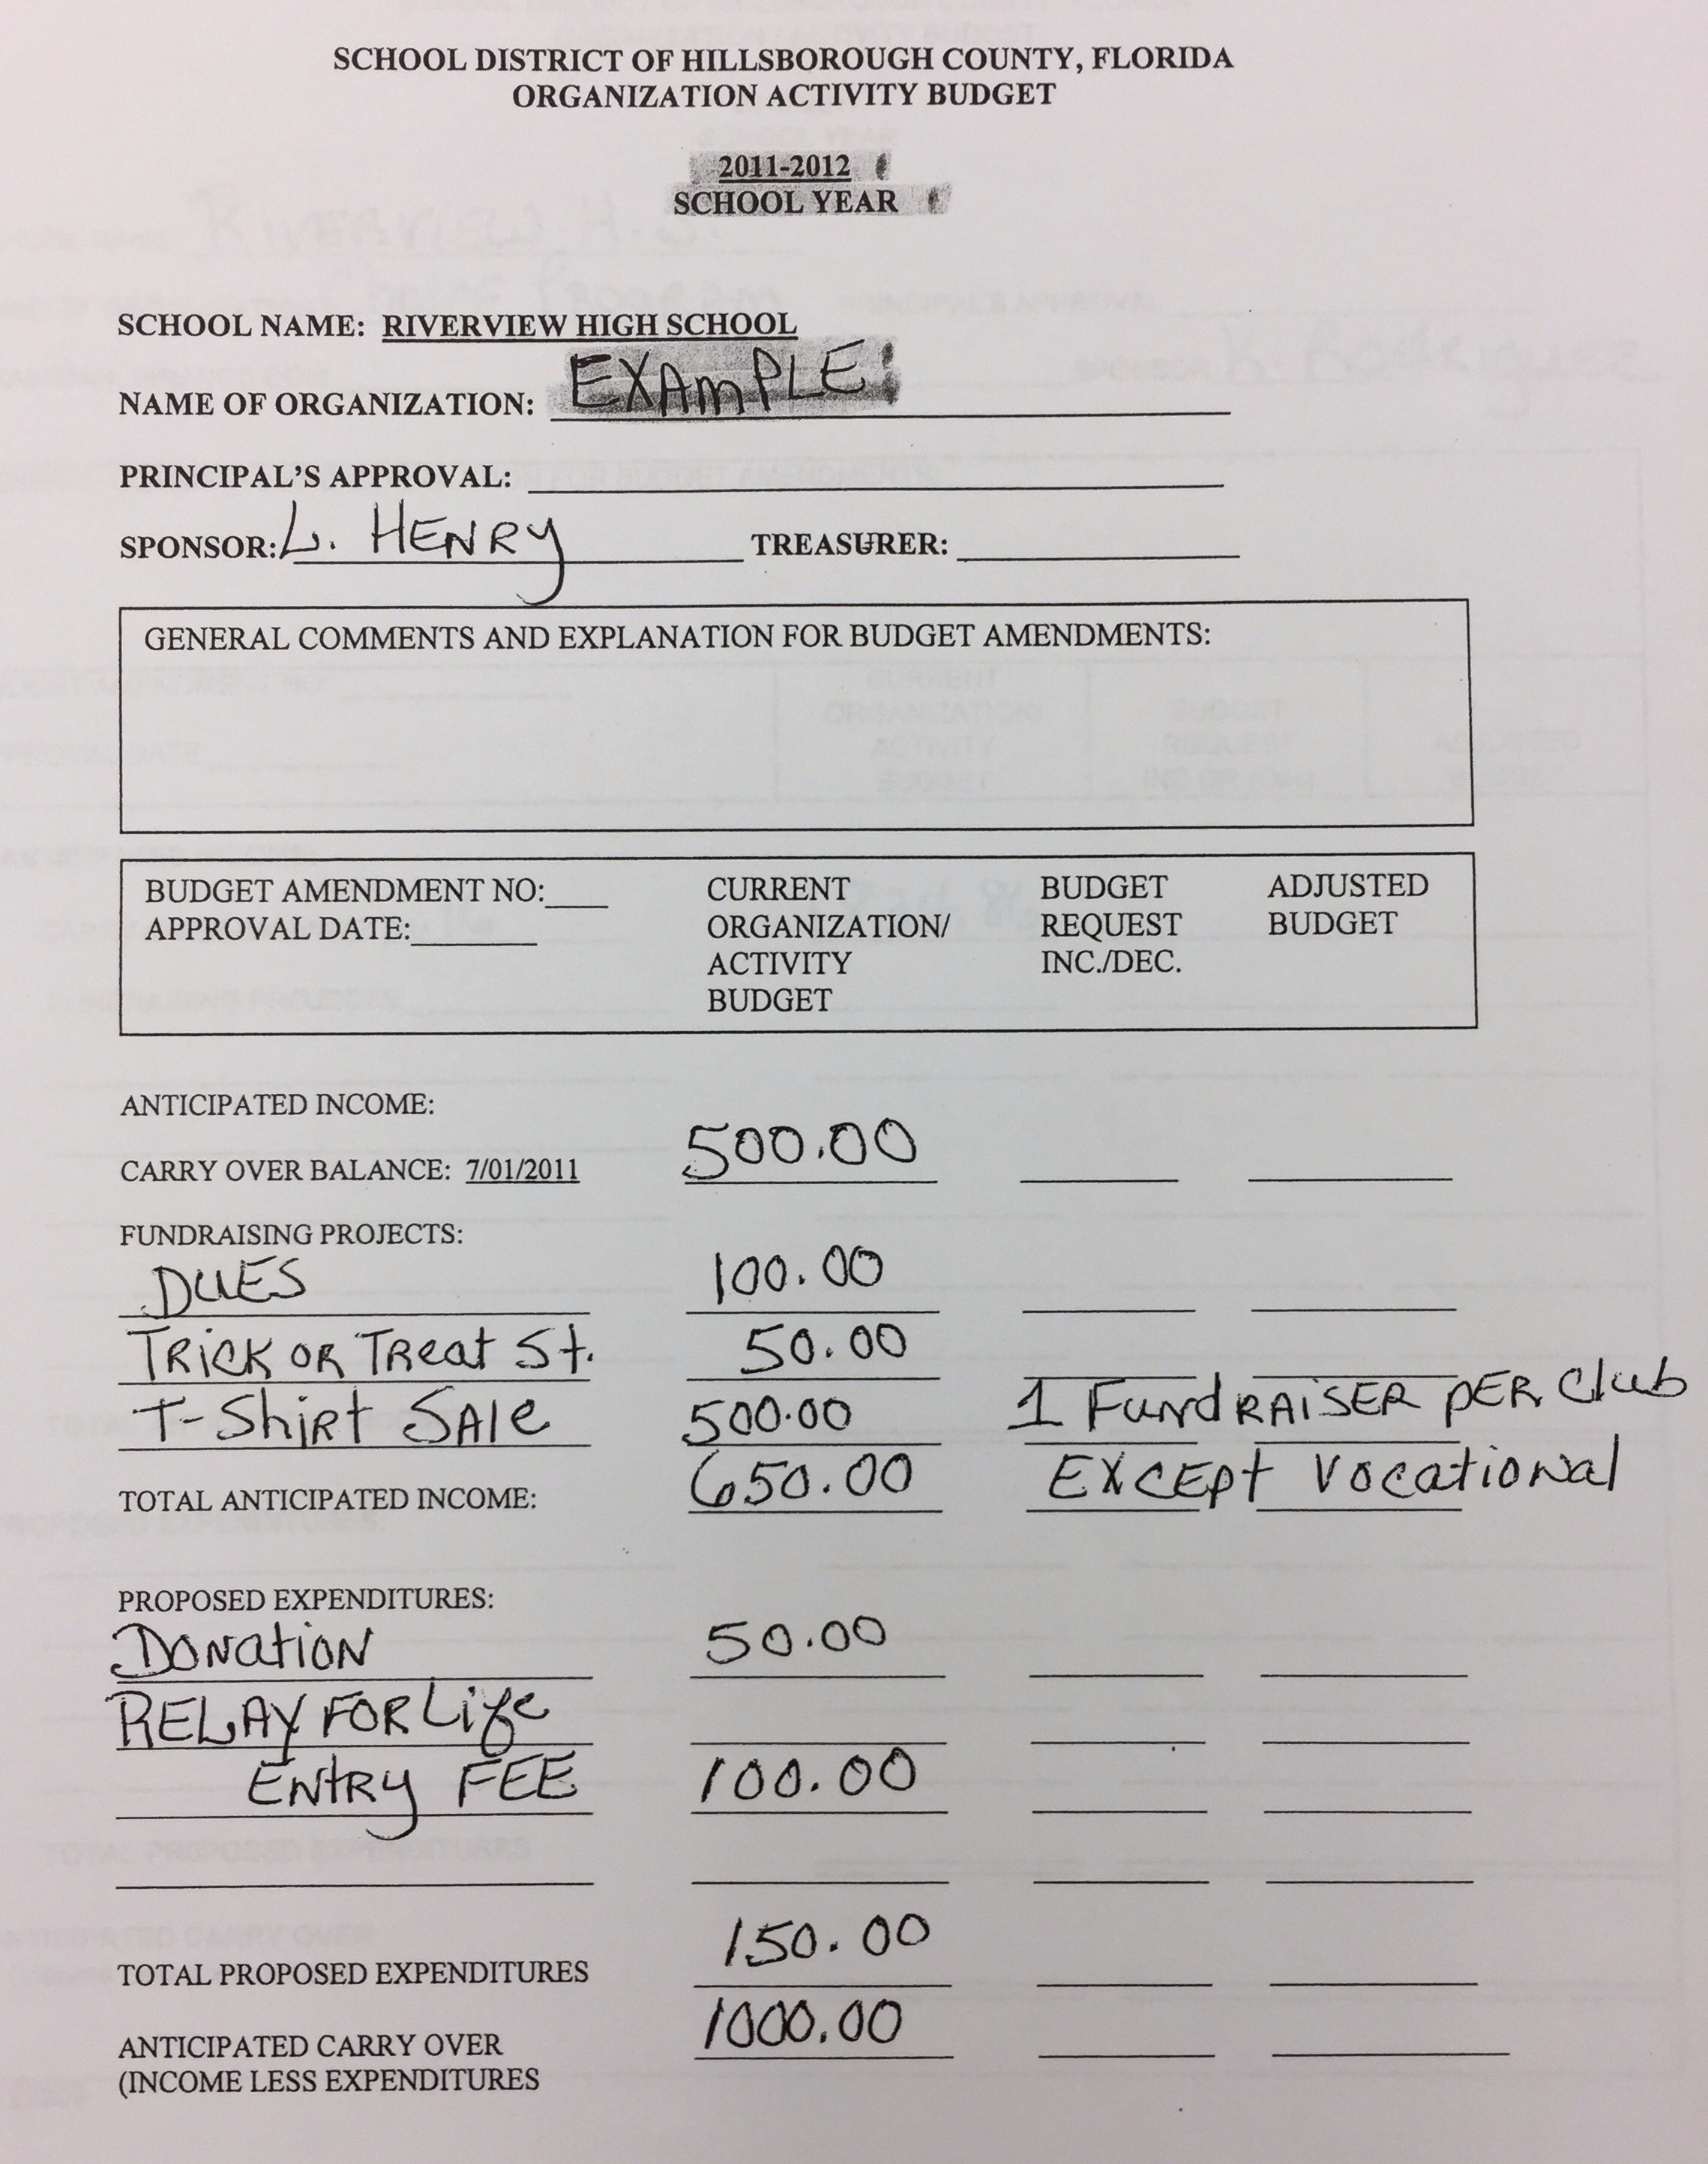 SCHOOL DISTRICT OF HILLSBOROUGH COUNTY, FLORIDA
ORGANIZATION ACTIVITY BUDGET
2011-2012
SCHOOL YEAR
SCHOOL NAME: RIVERVIEW HIGH SCHOOL
NAME OF ORGANIZATION: EXAMPLE
PRINCIPAL'S APPROVAL:
SPONSOR: L. HENRY TREASURER:
GENERAL COMMENTS AND EXPLANATION FOR BUDGET AMENDMENTS:
BUDGET AMENDMENT NO: CURRENT BUDGET ADJUSTED
APPROVAL DATE: ORGANIZATION/ REQUEST BUDGET
ACTIVITY INC./DEC.
BUDGET
ANTICIPATED INCOME:
CARRY OVER BALANCE: 7/01/2011 500.00
FUNDRAISING PROJECTS:
DUES 100.00
TRICK OR TREAT St. 50.00
T-SHIRT SALE 500.00 1 FUNDRAISER PER Club
TOTAL ANTICIPATED INCOME: 650.00 EXCEPT VOCATIONAL
PROPOSED EXPENDITURES:
DONATION 50.00
RELAY FOR Life
ENTRY FEE 100.00
TOTAL PROPOSED EXPENDITURES 150.00
ANTICIPATED CARRY OVER 1000.00
(INCOME LESS EXPENDITURES